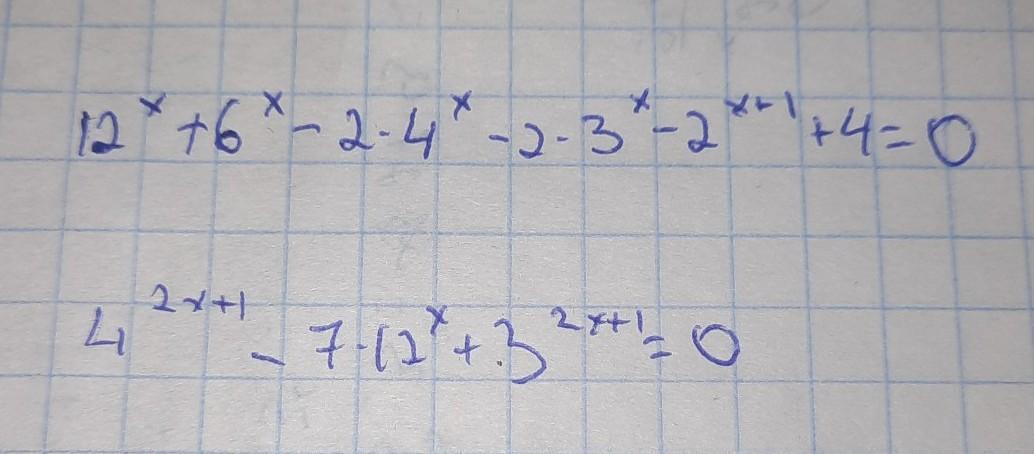 12^x + 6^x - 2·4^x - 2·3^x - 2^{x+1} + 4 = 0
4^{2x+1} - 7·12^x + 3^{2x+1} = 0